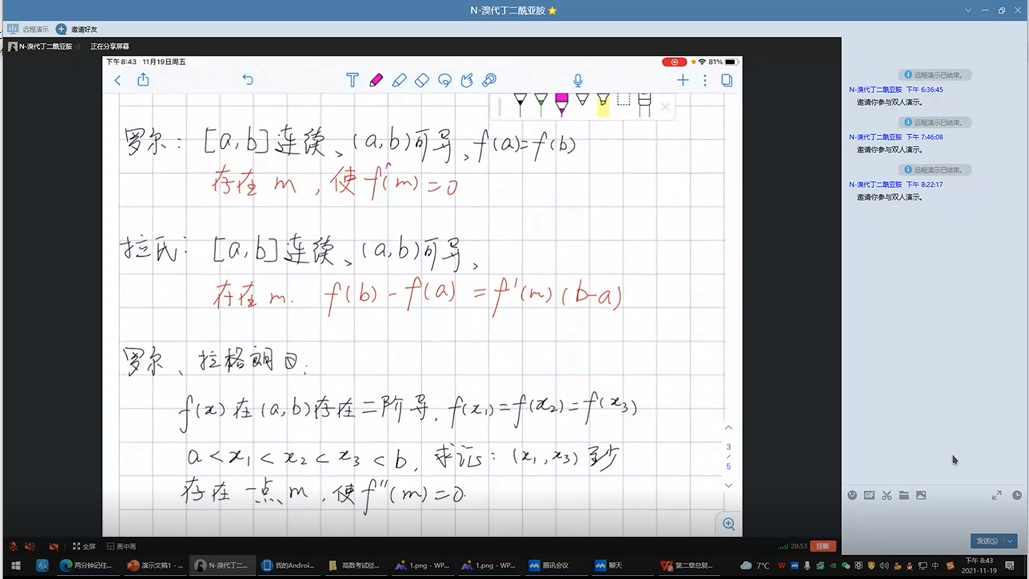 N-溴代丁二酰亚胺
远程演示 邀请好友
N-溴代丁二酰亚胺 正在分享屏幕
下午8:43 11月19日周五
81%
罗尔: [a,b]连续、(a,b)可导,f(a)=f(b)
存在 m ,使f'(m)=0
拉氏: [a,b]连续、(a,b)可导、
存在 m. f(b)-f(a)=f'(m)(b-a)
罗尔、拉格朗日:
f(x)在(a,b)存在二阶导, f(x₁)=f(x₂)=f(x₃)
a<x₁<x₂<x₃<b, 求证: (x₁,x₃)至少
存在一点m,使f''(m)=0.
3
/
5
远程演示已结束。
N-溴代丁二酰亚胺 下午 6:36:45
邀请你参与双人演示。
远程演示已结束。
N-溴代丁二酰亚胺 下午 7:46:08
邀请你参与双人演示。
远程演示已结束。
N-溴代丁二酰亚胺 下午 8:22:17
邀请你参与双人演示。
发送(S)
全屏 画中画
20:53 挂断
两分钟记住... 演示文稿1 - ... N-溴代丁二... 我的Android... 高数考试经... 1.png - WP... 1.png - WP... 腾讯会议 聊天 第二章总复...
7°C
中
下午 8:43
2021-11-19